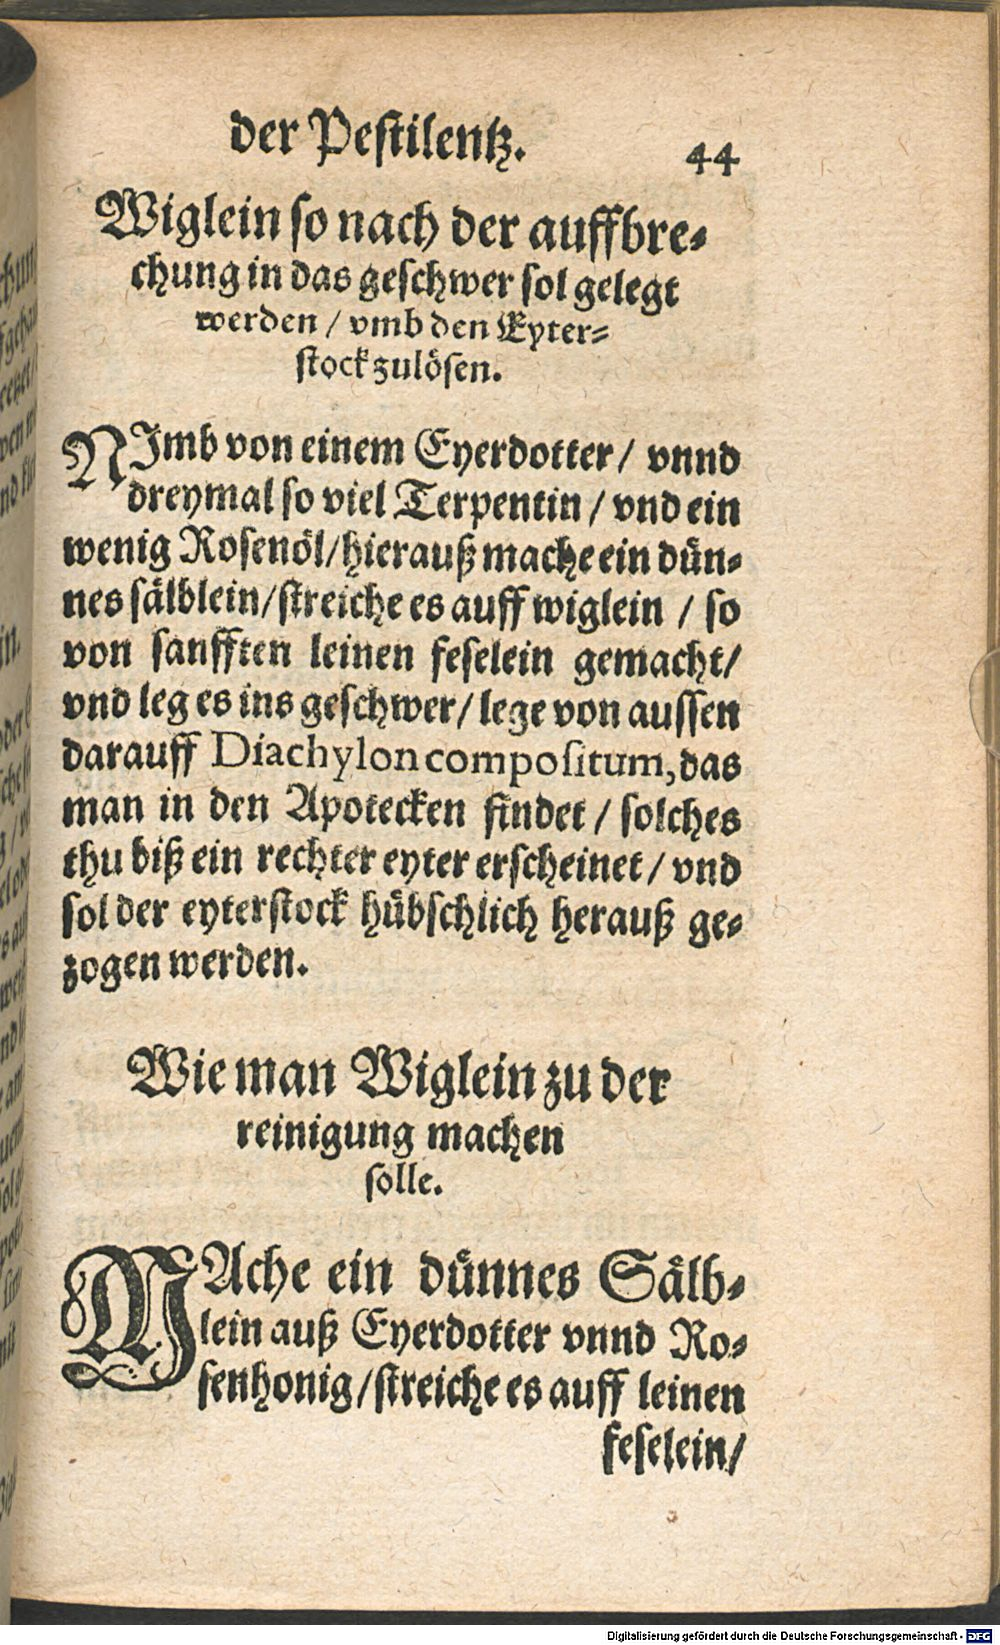 der Pestilentz.
44
Wiglein so nach der auffbre⸗
chung in das geschwer sol gelegt
werden / vmb den Eyter⸗
stock zulösen.
NJmb von einem Eyerdotter / vnnd
dreymal so viel Terpentin / vnd ein
wenig Rosenöl/hierauß mache ein dün⸗
nes sälblein/streiche es auff wiglein / so
von sanfften leinen feselein gemacht/
vnd leg es ins geschwer/ lege von aussen
darauff Diachylon compositum, das
man in den Apotecken findet / solches
thu biß ein rechter eyter erscheinet / vnd
sol der eyterstock hübschlich herauß ge⸗
zogen werden.
Wie man Wiglein zu der
reinigung machen
solle.
MAche ein dünnes Sälb⸗
lein auß Eyerdotter vnnd Ro⸗
senhonig/streiche es auff leinen
feselein/
Digitalisierung gefördert durch die Deutsche Forschungsgemeinschaft - DFG